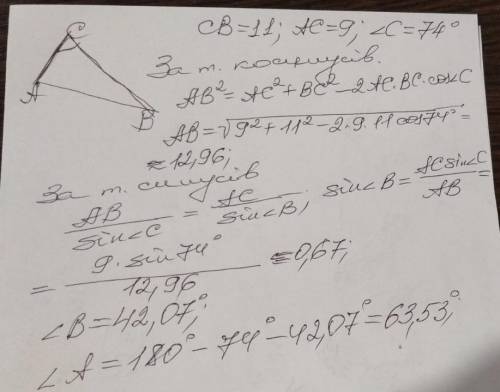 C
A
B
CB=11; AC=9; ∠C=74°
За т. косинусів.
AB²=AC²+BC²-2AC·BC·cos∠C
AB=√9²+11²-2·9·11cos74°=
≈12,96;
За т. синусів
AB/sin∠C = AC/sin∠B; sin∠B=ACsin∠C/AB=
=9·sin74°/12,96≈0,67;
∠B=42,07°;
∠A=180°-74°-42,07°=63,53°;